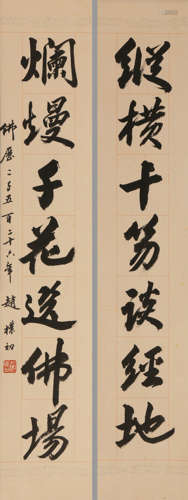 縱橫十笏談經地
爛熳千花選佛場
佛曆二千五百二十六年 趙樸初